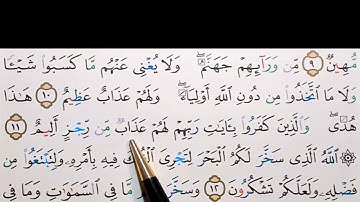 مُّهِينٌ ٩ مِّن وَرَآئِهِمْ جَهَنَّمُ ۖ وَلَا يُغْنِى عَنْهُم مَّا كَسَبُوا۟ شَيْـًٔا
وَلَا مَا ٱتَّخَذُوا۟ مِن دُونِ ٱللَّهِ أَوْلِيَآءَ ۖ وَلَهُمْ عَذَابٌ عَظِيمٌ ١٠ هَـٰذَا
هُدًى ۖ وَٱلَّذِينَ كَفَرُوا۟ بِـَٔايَـٰتِ رَبِّهِمْ لَهُمْ عَذَابٌ مِّن رِّجْزٍ أَلِيمٌ ١١
۞ ٱللَّهُ ٱلَّذِى سَخَّرَ لَكُمُ ٱلْبَحْرَ لِتَجْرِىَ ٱلْفُلْكُ فِيهِ بِأَمْرِهِۦ وَلِتَبْتَغُوا۟ مِن
فَضْلِهِۦ وَلَعَلَّكُمْ تَشْكُرُونَ ١٢ وَسَخَّرَ مَّا فِى ٱلسَّمَـٰوَٰتِ وَمَا فِى